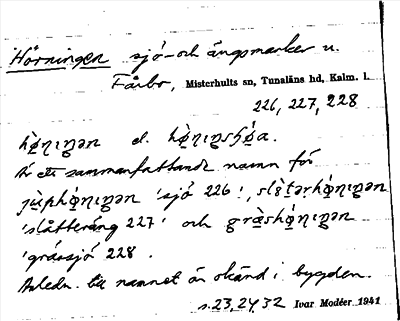 Hörningen sjö- och ängsmarker u.
Fårbo, Misterhults sn, Tunaläns hd, Kalm. l.
226, 227, 228
hö̀ṇıŋən el. hö̀ṇıŋsʃö́a.
Är ett sammanfattande namn för
jùphö́ṇıŋən 'sjö 226', slɛ̀tərhö́ṇıŋən
'slåtteräng 227' och gràshö́ṇıŋən
'grässjö 228.
Anledn. till namnet är okänd i bygden.
s. 23, 24, 32 Ivar Modéer 1941